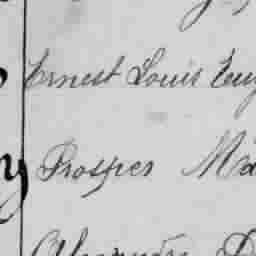 Ernest Louis Eug
Prosper Ma
Alexandre D